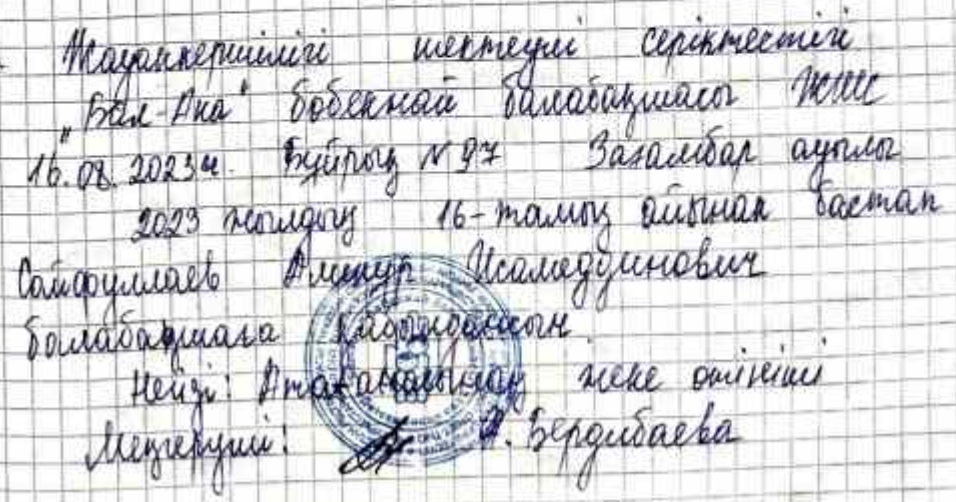 Жауапкершілігі шектеулі серіктестігі
"Бал-Ана" бөбекжай балабақшасы ЖШС
16.08.2023ж. Бұйрық №97 Зағамбар ауылы
2023 жылдың 16-тамыз айынан бастап
Сайфуллаев Аминур Исамеддинович
балабақшаға қабылдансын.
Негізі: Ата-анасының жеке өтініші
Меңгеруші: Бердібаева